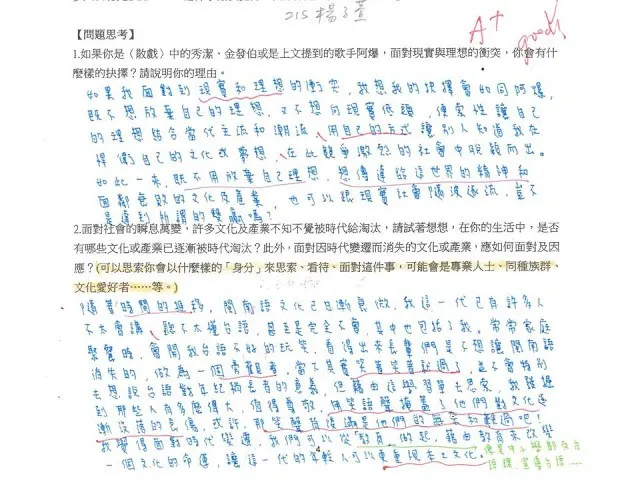 215 楊子萱
A+
good!
【問題思考】
1.如果你是〈散戲〉中的秀潔、金發伯或是上文提到的歌手阿爆,面對現實與理想的衝突,你會有什
麼樣的抉擇?請說明你的理由。
如果我面對到現實和理想的衝突,我想我的抉擇會如同阿爆,
既不想放棄自己的理想,又不想向現實低頭,便索性讓自己
的理想結合當代主流和潮流,用自己的方式讓別人知道我在
捍衛自己的文化或夢想,在此競爭激烈的社會中脫穎而出。
如此一來,既不用放棄自己理想、想傳達給這世界的精神和
面鄰衰敗的文化及產業,也可以跟現實社會隨波逐流,豈不
是達到所謂的雙贏嗎?
2.面對社會的瞬息萬變,許多文化及產業不知不覺被時代給淘汰,請試著想想,在你的生活中,是否
有哪些文化或產業已逐漸被時代淘汰?此外,面對因時代變遷而消失的文化或產業,應如何面對及因
應?(可以思索你會以什麼樣的「身分」來思索、看待、面對這件事,可能會是專業人士、同種族群、
文化愛好者……等。)
隨著時間的推移,閩南語文化已日漸衰微,我這一代已有許多人
不太會講、聽不太懂台語,甚至是完全不會,其中也包括了我。常常家庭
聚餐時,會開我台語不好的玩笑,看得出來長輩們是不想讓閩南語
消失的,做為一個旁觀者,當下其實笑著笑著就過了,並不會特別
去想說台語對年紀稍長者的意義,但藉由這學習單去思索,我
到那些人有多麼偉大,值得尊敬,
漸沒落的哀傷,或許,那笑聲背後滿是他們的無奈和難過吧!
我覺得面對時代變遷,我們可以從「教育」做起,藉由教育來改變
一個文化的命運,讓這一代的年輕人可以更重視本土文化。
4